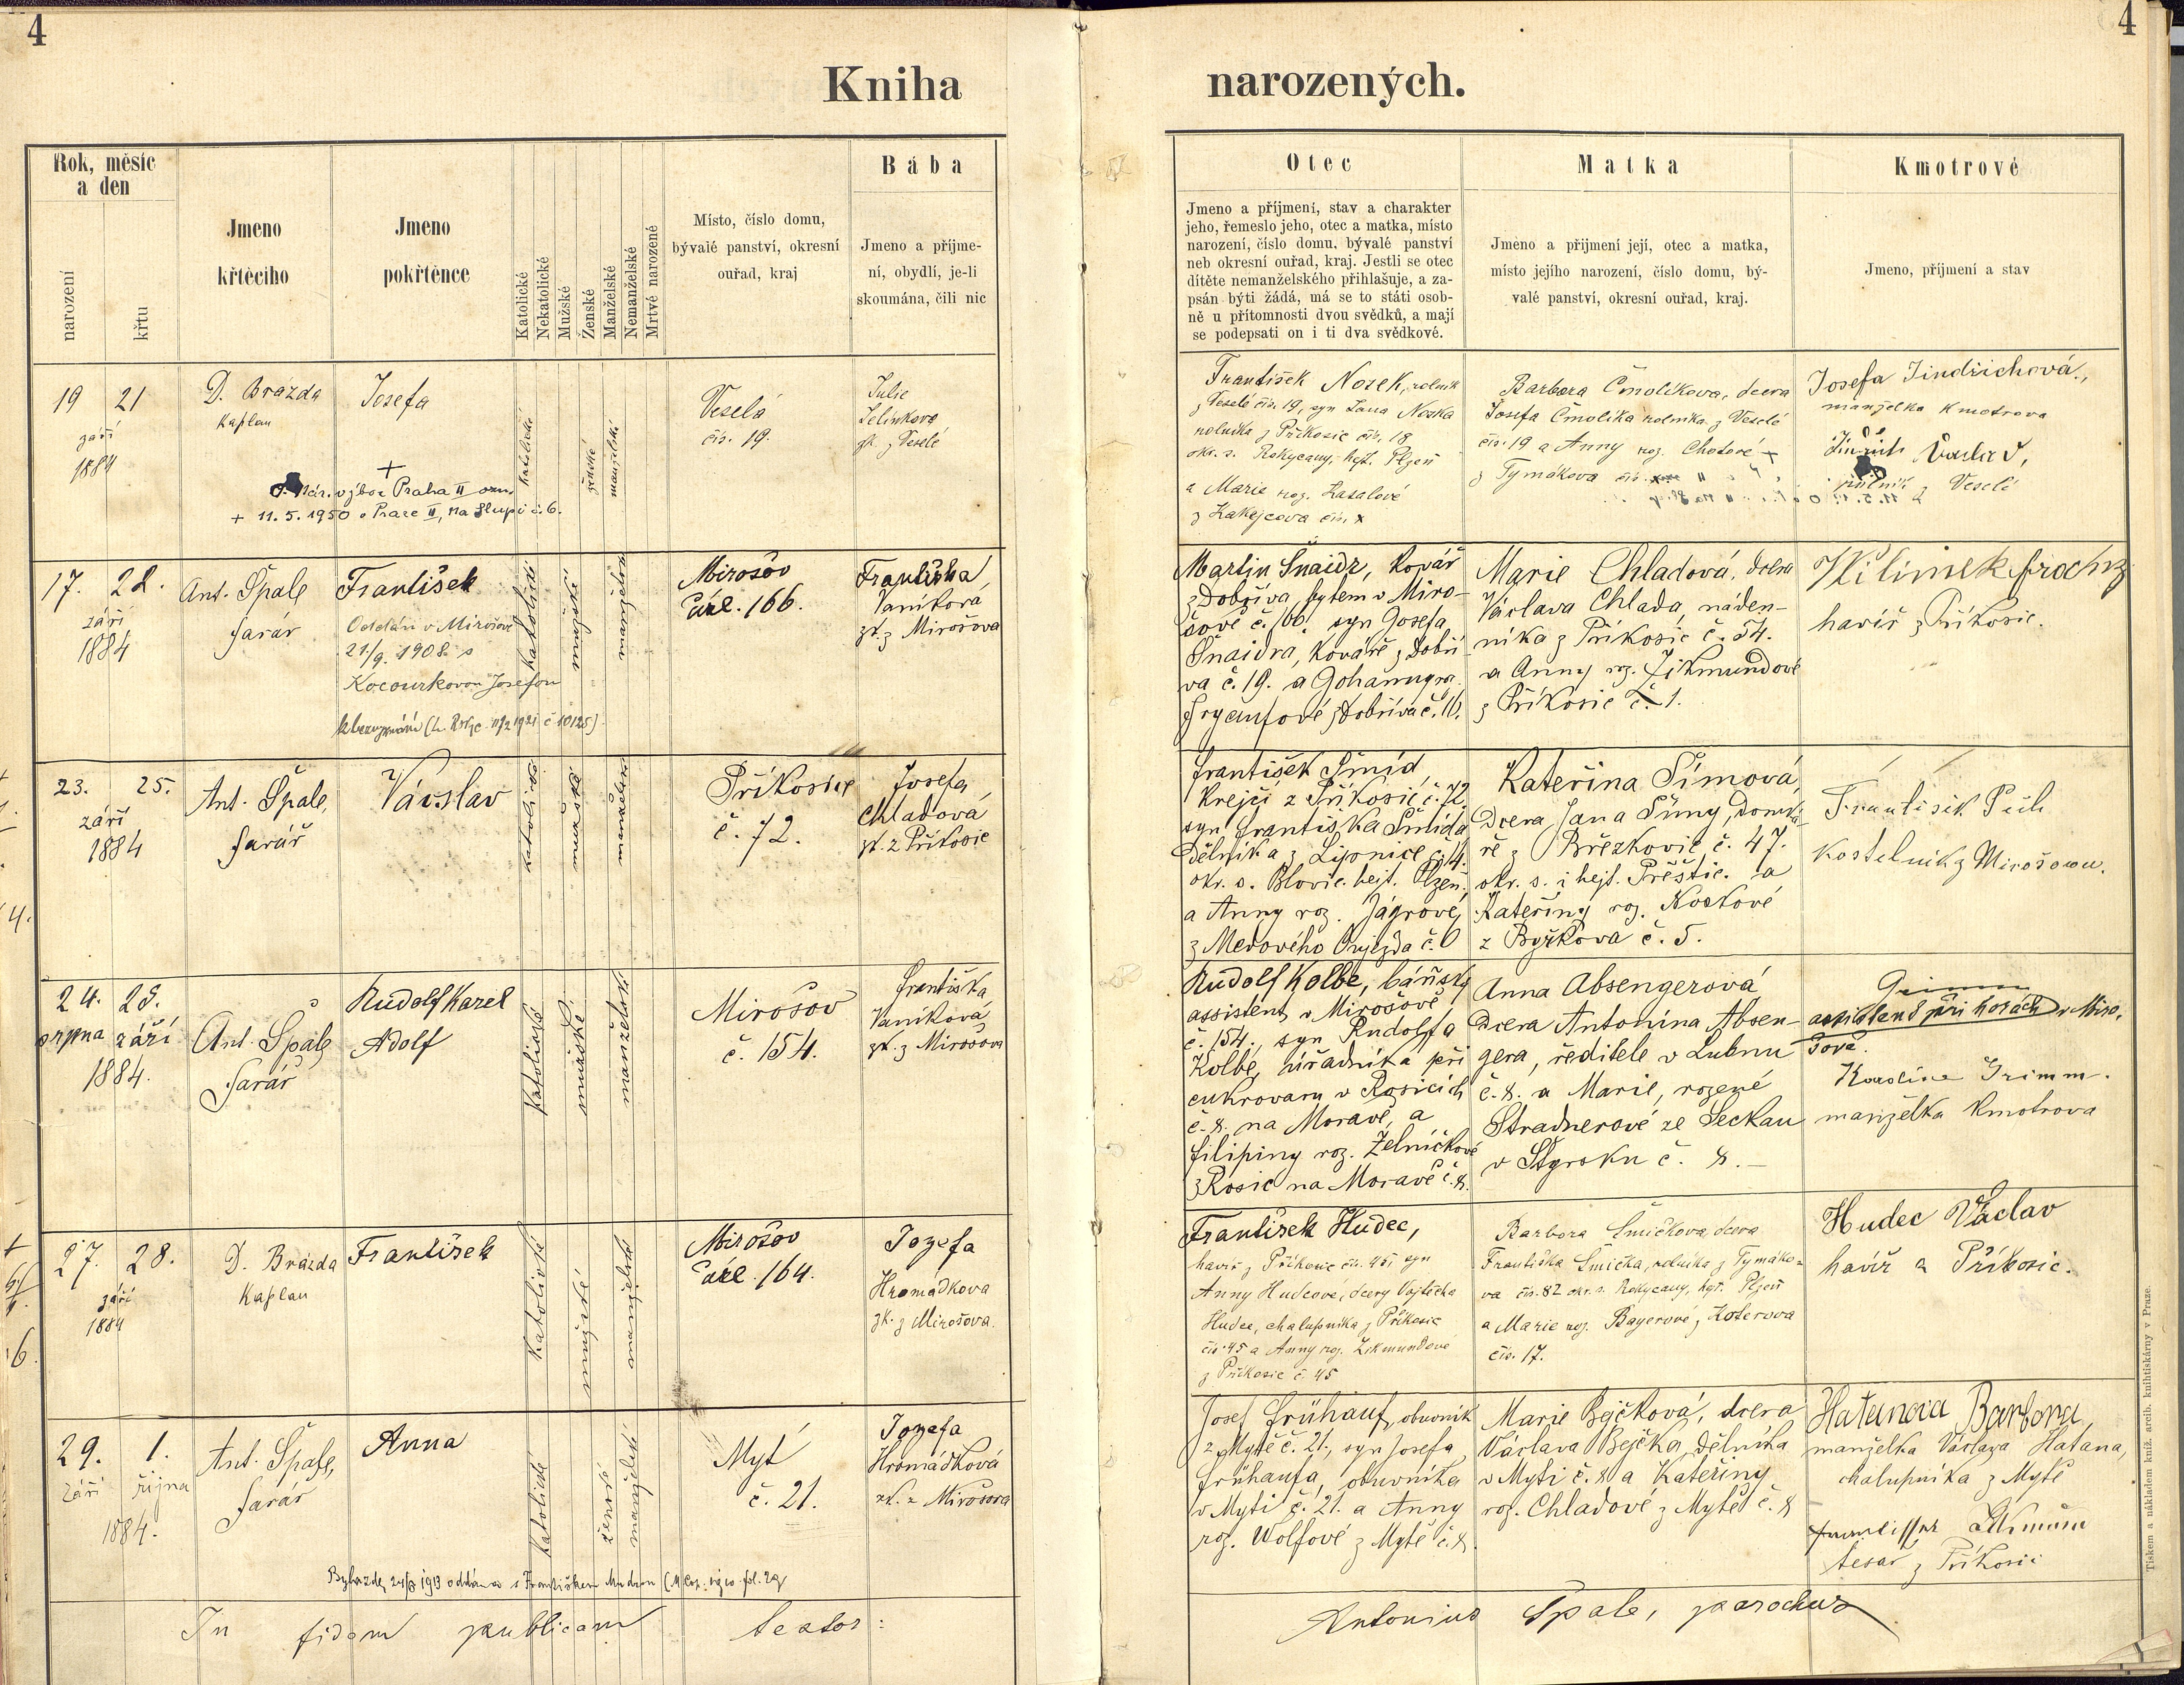 4
4
Kniha
narozených.
Rok, měsíc
a den
narození
křtu
Jmeno
křtěcího
Jmeno
pokřtěnce
Katolické
Nekatolické
Mužské
Ženské
Manželské
Nemanželské
Mrtvé narozené
Místo, číslo domu,
bývalé panství, okresní
ouřad, kraj
Bába
Jmeno a příjme-
ní, obydlí, je-li
skoumána, čili nic
Otec
Jmeno a příjmení, stav a charakter
jeho, řemeslo jeho, otec a matka, místo
narození, číslo domu, bývalé panství
neb okresní ouřad, kraj. Jestli se otec
dítěte nemanželského přihlašuje, a za-
psán býti žádá, má se to státi osob-
ně u přítomnosti dvou svědků, a mají
se podepsati on i ti dva svědkové.
Matka
Jméno a přijmení její, otec a matka,
místo jejího narození, číslo domu, bý-
valé panství, okresní ouřad, kraj.
Kmotrové
Jmeno, příjmení a stav
19 21
září
1884
D. Brázda
kaplan
Josefa
+
Nár. výbor Praha II
+ 11. 5. 1950 v Praze II, na Slupi č. 6.
katolické
ženské
manželské
Veselá
čís. 19.
Julie
Jelínkova
zk. z Veselé
František Nosek, rolník
z Veselé čís. 19, syn Jana Noska
rolníka z Příkosic čís. 18
okr. s. Rokycany, hejt. Plzeň
a Marie roz.
z Kakejcova čís. x
Barbora Čmolíkova, dcera
Josefa Čmolíka rolníka z Veselé
čís. 19 a Anny roz. Chotové
z Tymákova čís.
Josefa Jindřichová,
manželka kmotrova
z Veselé
17. 28.
září
1884
Ant. Špale
farář
František
Oddán v Mirošově
21/9. 1908 s
Kocourkovou Josefou
katolické
mužské
manželské
Mirošov
čísl. 166.
Františka
Vaníková
zk. z Mirošova
Martin Šnaidr, kovář
z Dobříva, bytem v Miro-
šově č. 166. syn Josefa
Šnaidra, kováře z Dobří
va č. 19. a Johanny roz.
z Dobříva č. 11.
Marie Chladová, dcera
Václava Chlada, náden-
níka z Příkosic č. 54.
a Anny roz. Zikmundové
z Příkosic č. 1.
havíř z Příkosic.
23. 25.
září
1884
Ant. Špale,
farář
Václav
katolické
mužské
manželské
Příkosice
č. 72.
Josefa
Chladová
zk. z Příkosic
František Šmíd
krejčí z Příkosic č. 72
syn Františka Šmída
dělníka z Lipnice č. 14.
okr. s. Blovic. hejt. Plzeň.
a Anny roz. Jágrové,
z Medového Oujezda č. 0
Kateřina Šímová,
dcera Jana Šímy, domká-
ře z Březkovic č. 47.
okr. s. i hejt. Přeštic. a
Kateřiny roz. Kostové
z Bzýkova č. 5.
kostelník z Mirošova.
24. 25.
srpna září
1884.
Ant. Špale
farář
Rudolf Karel
Adolf
katolické
mužské
manželské
Mirošov
č. 154.
Františka
Vaníková
zk. z Mirošova
Rudolf Kolbe, báňský
assistent v Mirošově
č. 154., syn Rudolfa
Kolbe, úřadníka při
cukrovaru v Rosicích
č. 8. na Moravě, a
Filipiny roz. Želníčkové
z Rosic na Moravě č. 8.
Anna Absengerová
dcera Antonína Absen-
gera, ředitele v Lubnu
č. 8. a Marie, rozené
Stradnerové ze Seckau
v Štyrsku č. 8. –
Grimm
assistent při horách v Miro-
šově.
Karoline Grimm.
manželka kmotrova
27. 28.
září
1884
D. Brázda
kaplan
František
katolické
mužské
manželské
Mirošov
čísl. 164.
Jozefa
Hromádkova
zk. z Mirošova.
František Hudec,
havíř z Příkosic čís. 45, syn
Anny Hudcové, dcery Vojtěcha
Hudce, chalupníka z Příkosic
čís. 45 a Anny roz. Zikmundové
z Příkosic č. 45
Barbora Šmičkova, dcera
Františka Šmička, rolníka z Tymáko-
va čís. 82 okr. s. Rokycany, hejt. Plzeň
a Marie roz. Bayerové z Koterova
čís. 17.
Hudec Václav
havíř z Příkosic.
29. 1.
září října
1884.
Ant. Špale,
farář
Anna
katolické
ženské
manželské
Mýt
č. 21.
Jozefa
Hromádková
zk. z Mirošova
Josef Frühauf, obuvník
z Mýtě č. 21., syn Josefa
Frühaufa, obuvníka
v Mýti č. 21. a Anny
roz. Wolfové z Mýtě č. 8.
Marie Bejčková, dcera
Václava Bejčka, dělníka
v Mýti č. 8 a Kateřiny
roz. Chladové z Mýtě č. 8
Hatanova Barbora,
manželka Václava Hatana,
chalupníka z Mýtě
tesař z Příkosic
In fidem publicam testor:
Antonius Špale, parochus
Tiskem a nákladem kníž. arcib. knihtiskárny v Praze.